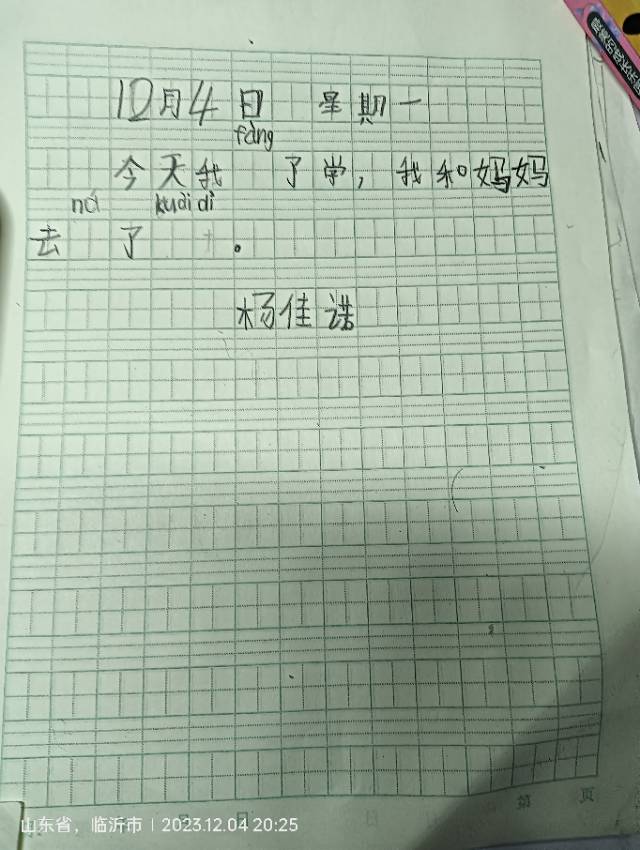 12月4日 星期一
fàng
今天我 了学，我和妈妈
ná kuài dì
去 了 。
杨佳诺
第 页
山东省，临沂市 | 2023.12.04 20:25